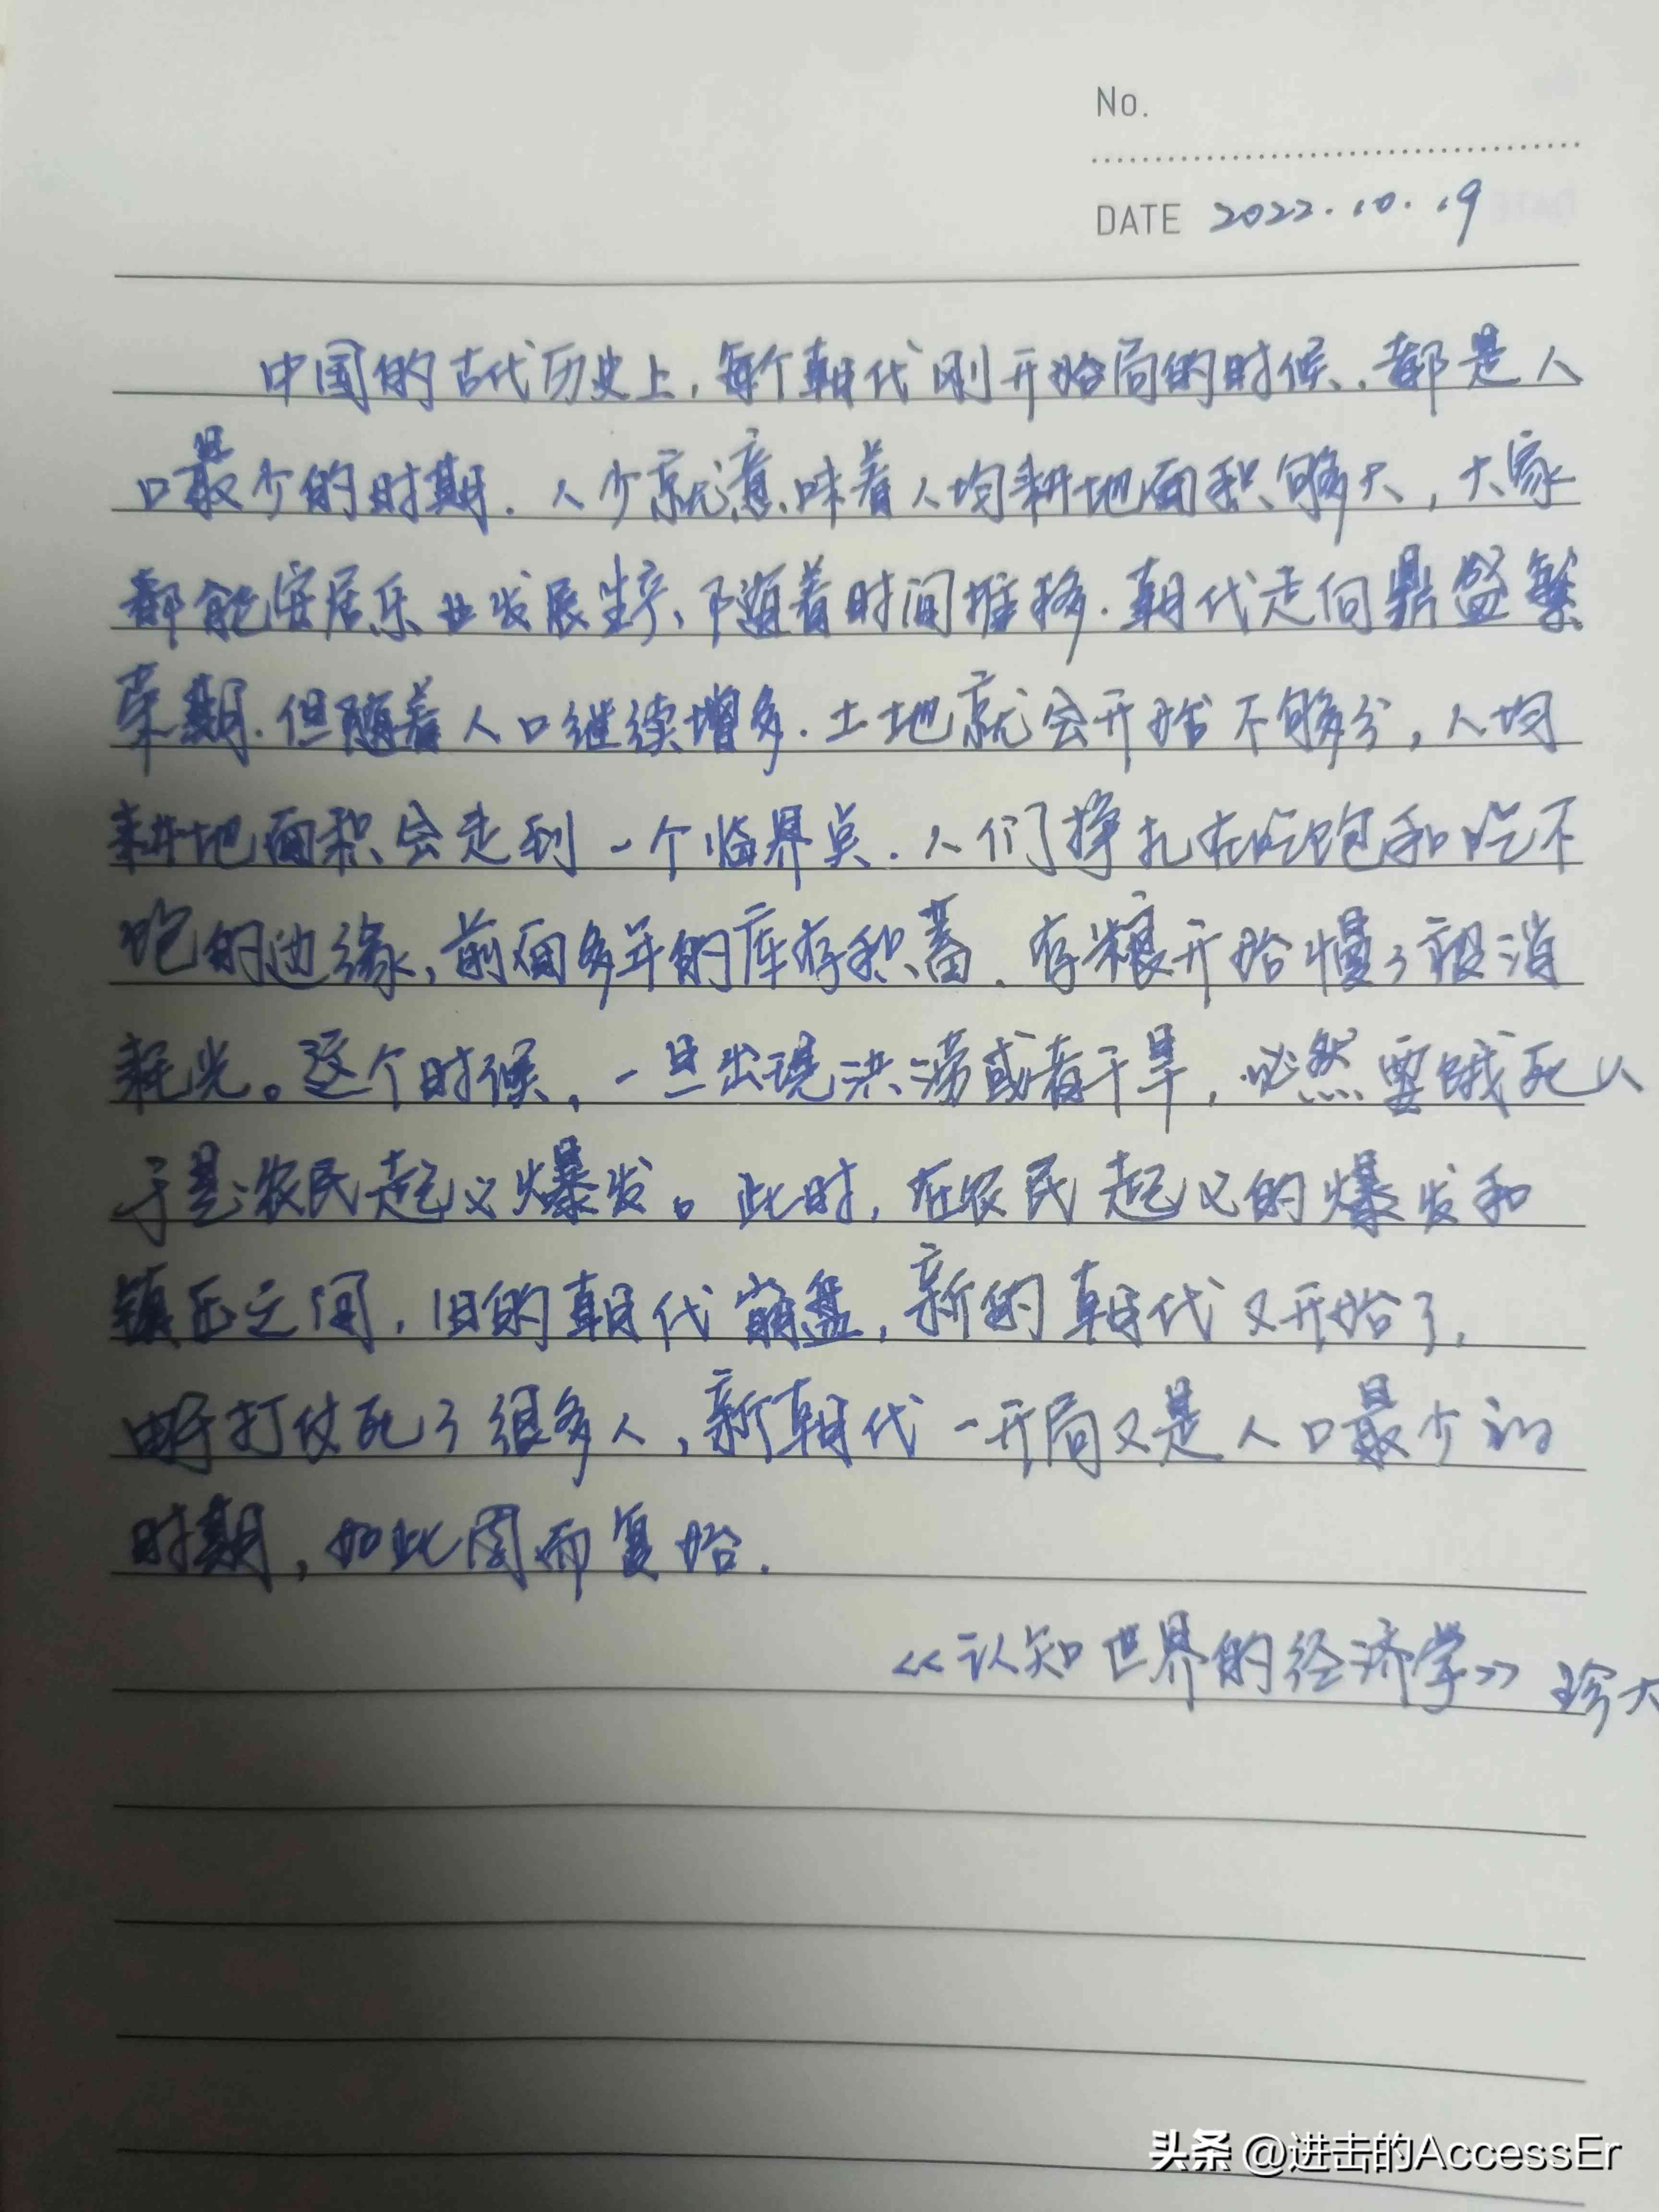 No.
DATE 2022.10.19
中国的古代历史上,每个朝代刚开始局的时候,都是人
口最少的时期.人少就意味着人均耕地面积够大,大家
都能安居乐业发展生产、随着时间推移.朝代走向鼎盛繁
荣期.但随着人口继续增多.土地就会开始不够分,人均
耕地面积会走到一个临界点.人们挣扎在吃饱和吃不
饱的边缘,前面多年的库存积蓄、存粮开始慢々被消
耗光。这个时候,一旦出现洪涝或者干旱,必然要饿死人
于是农民起义爆发。此时,在农民起义的爆发和
镇压之间,旧的朝代崩盘,新的朝代又开始了,
由于打仗死了很多人,新朝代一开局又是人口最少的
时期,如此周而复始.
《认知世界的经济学》珍大
头条 @进击的AccessEr